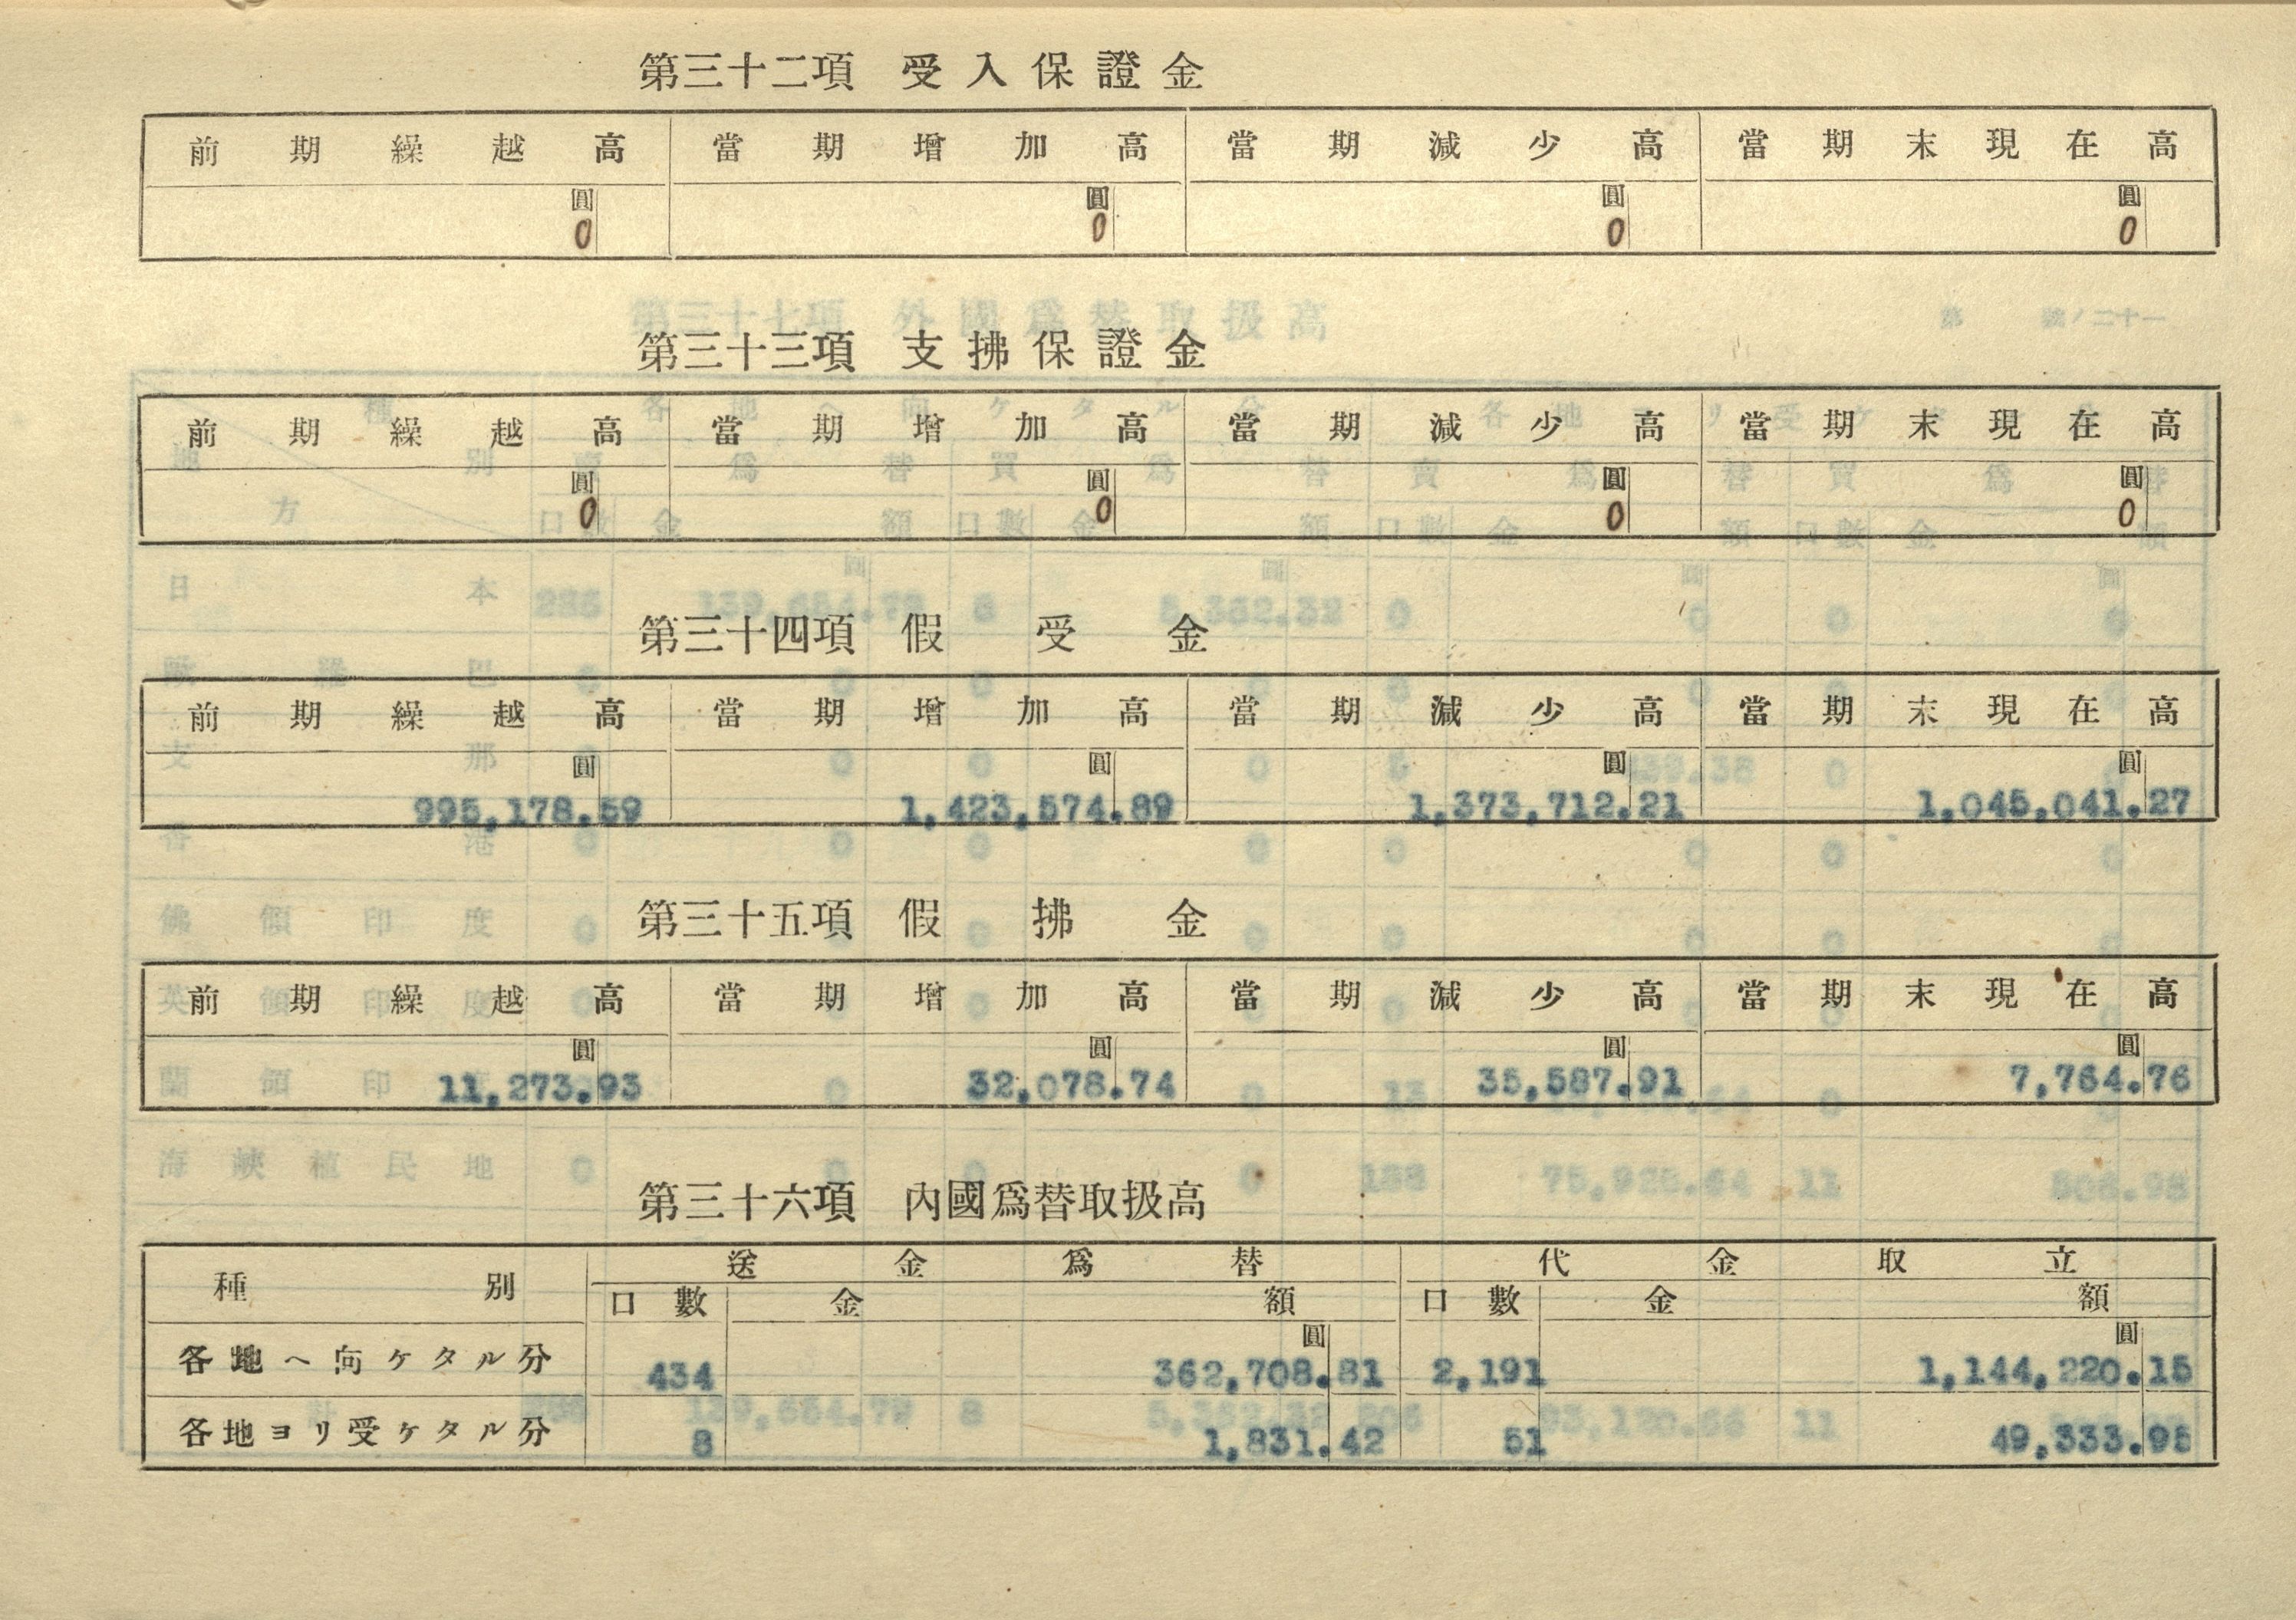 第三十二項 受入保證金
前期繰越高 當期增加高 當期減少高 當期末現在高
圓 圓 圓 圓
0 0 0 0
第三十三項 支拂保證金
前期繰越高 當期增加高 當期減少高 當期末現在高
圓 圓 圓 圓
0 0 0 0
第三十四項 假受金
前期繰越高 當期增加高 當期減少高 當期末現在高
圓 圓 圓 圓
995,178.59 1,423,574.89 1,373,712.21 1,045,041.27
第三十五項 假拂金
前期繰越高 當期增加高 當期減少高 當期末現在高
圓 圓 圓 圓
11,273.93 32,078.74 35,587.91 7,764.76
第三十六項 內國爲替取扱高
種別 送金爲替 代金取立
口數 金額 口數 金額
圓 圓
各地ヘ向ケタル分 434 362,708.81 2,191 1,144,220.15
各地ヨリ受ケタル分 8 1,831.42 51 49,333.95